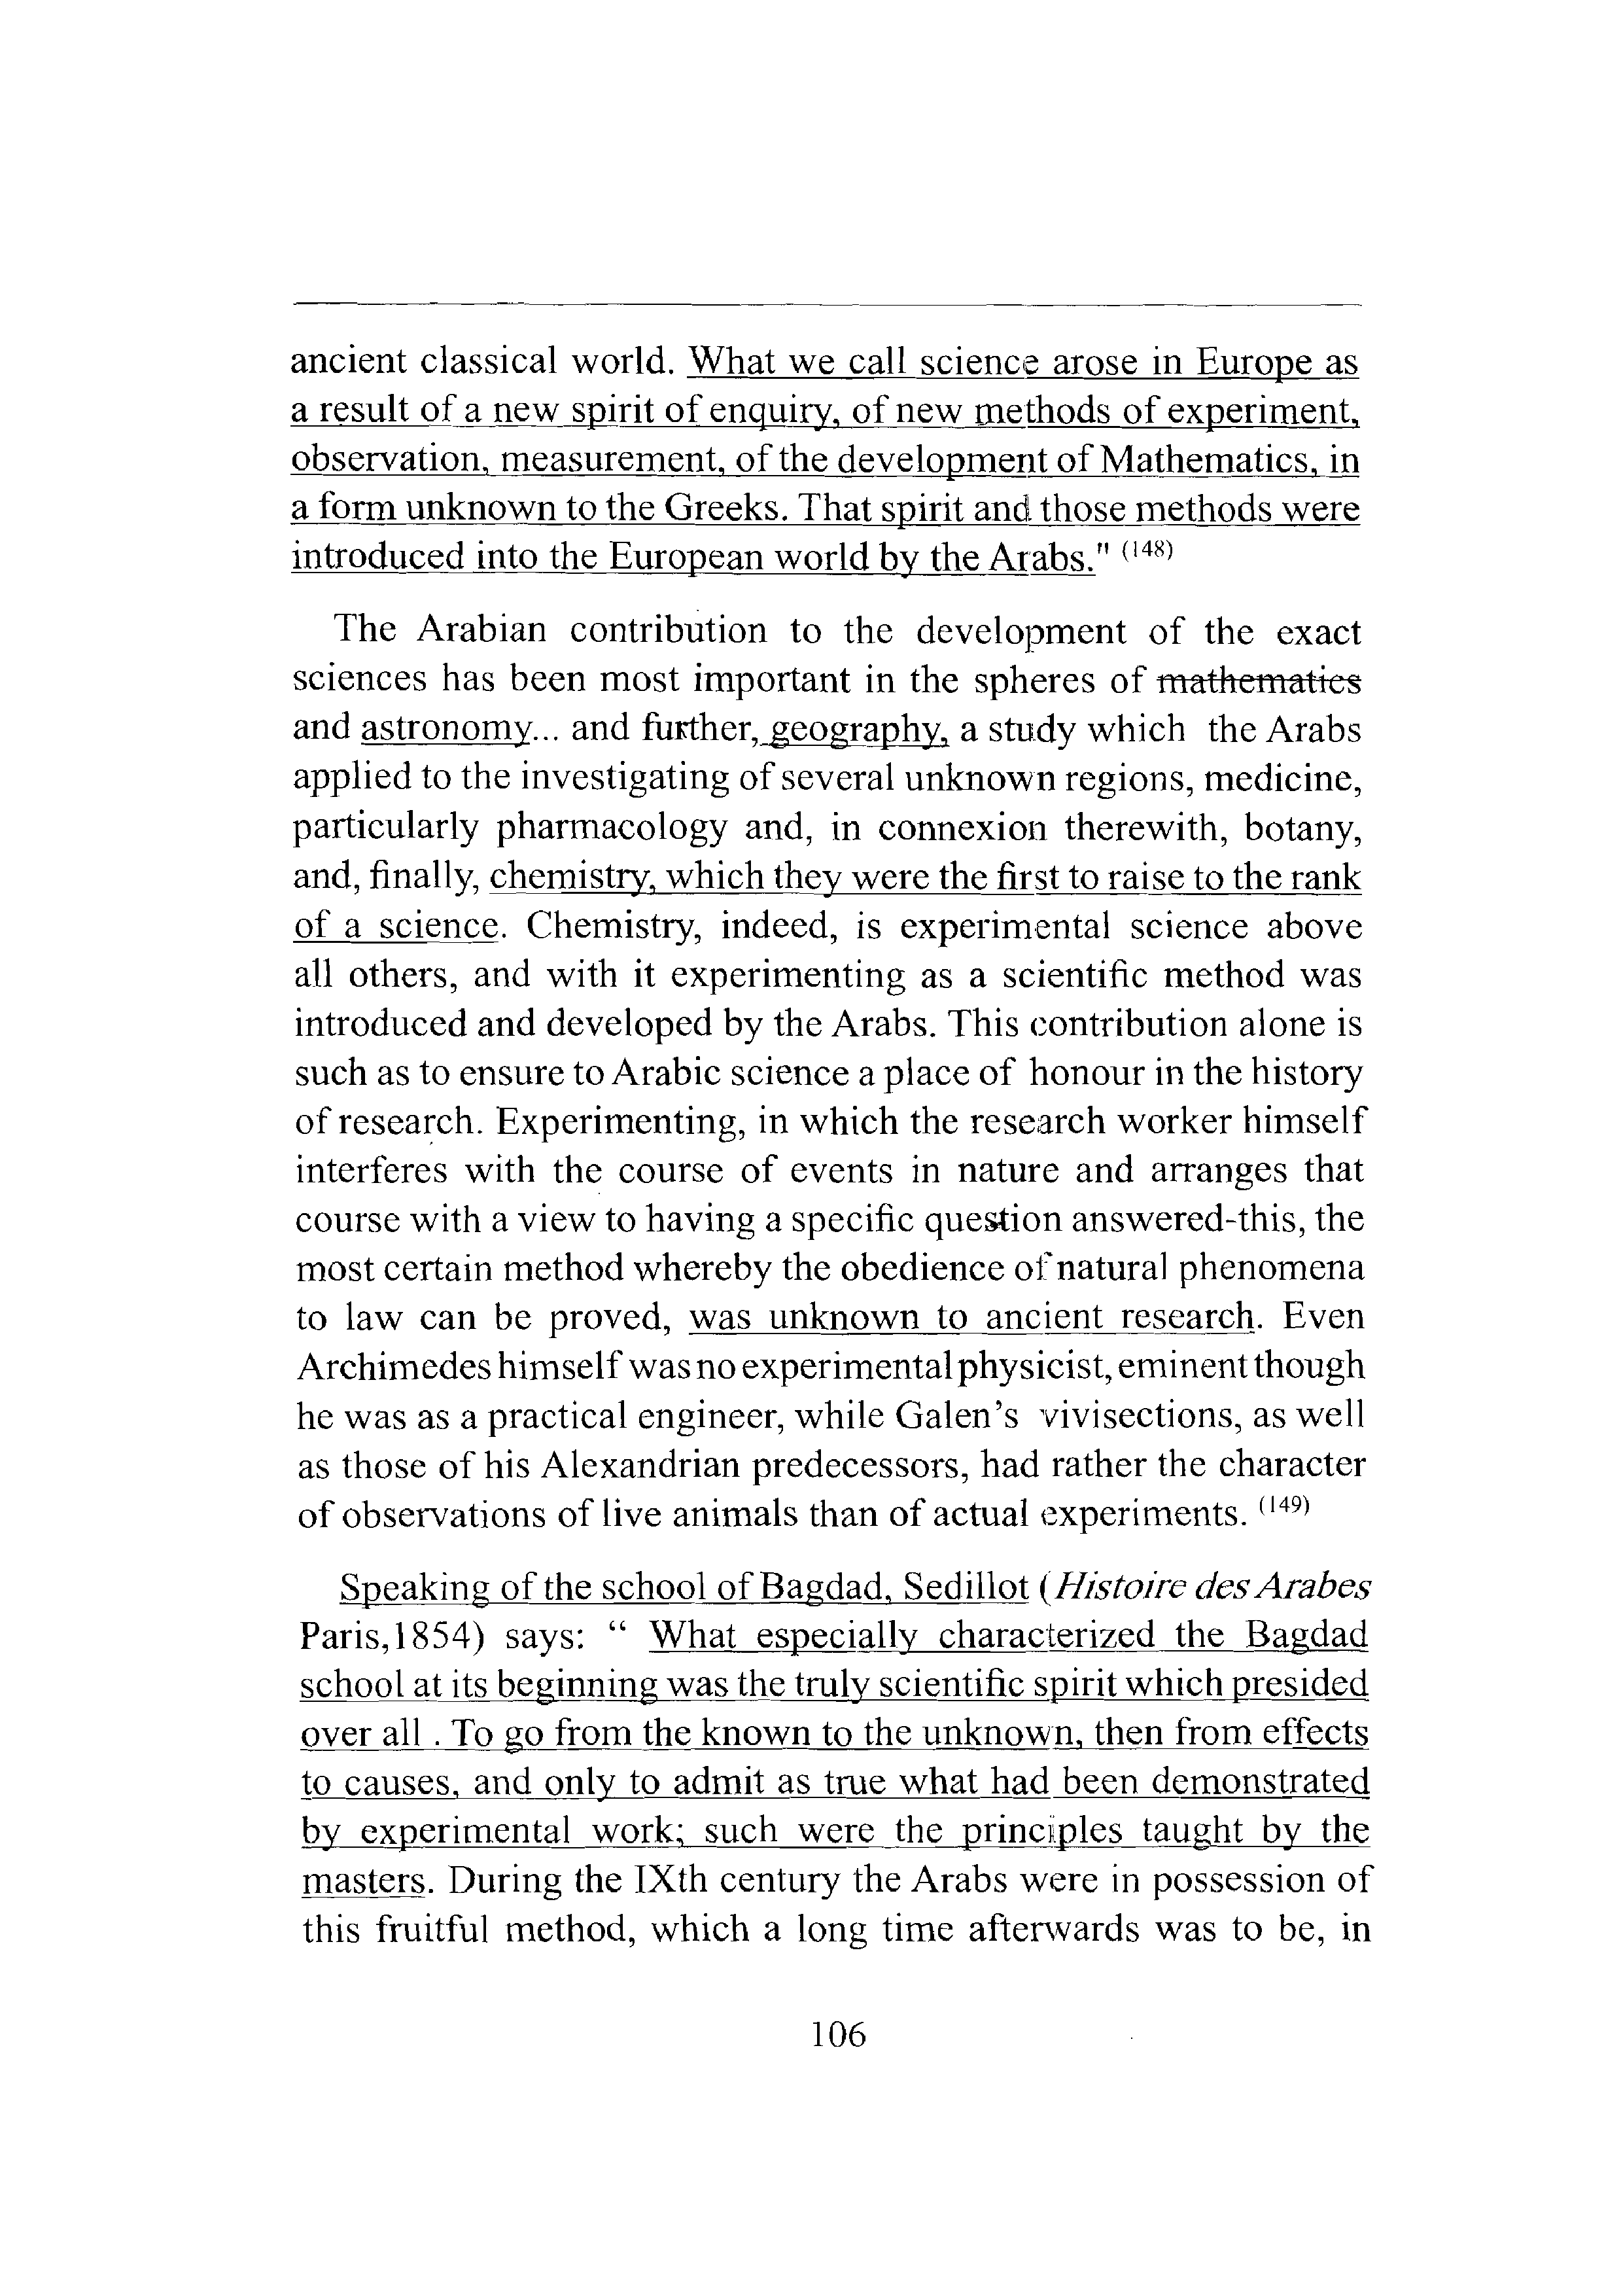 ancient classical world. What we call science arose in Europe as
a result of a new spirit of enquiry, of new methods of experiment,
observation, measurement, of the development of Mathematics, in
a form unknown to the Greeks. That spirit and those methods were
introduced into the European world by the Arabs." (148)
The Arabian contribution to the development of the exact
sciences has been most important in the spheres of mathematics
and astronomy... and further, geography, a study which the Arabs
applied to the investigating of several unknown regions, medicine,
particularly pharmacology and, in connexion therewith, botany,
and, finally, chemistry, which they were the first to raise to the rank
of a science. Chemistry, indeed, is experimental science above
all others, and with it experimenting as a scientific method was
introduced and developed by the Arabs. This contribution alone is
such as to ensure to Arabic science a place of honour in the history
of research. Experimenting, in which the research worker himself
interferes with the course of events in nature and arranges that
course with a view to having a specific question answered-this, the
most certain method whereby the obedience of natural phenomena
to law can be proved, was unknown to ancient research. Even
Archimedes himself was no experimental physicist, eminent though
he was as a practical engineer, while Galen's vivisections, as well
as those of his Alexandrian predecessors, had rather the character
of observations of live animals than of actual experiments. (149)
Speaking of the school of Bagdad, Sedillot (Histoire des Arabes
Paris,1854) says: “ What especially characterized the Bagdad
school at its beginning was the truly scientific spirit which presided
over all . To go from the known to the unknown, then from effects
to causes, and only to admit as true what had been demonstrated
by experimental work; such were the principles taught by the
masters. During the IXth century the Arabs were in possession of
this fruitful method, which a long time afterwards was to be, in
106